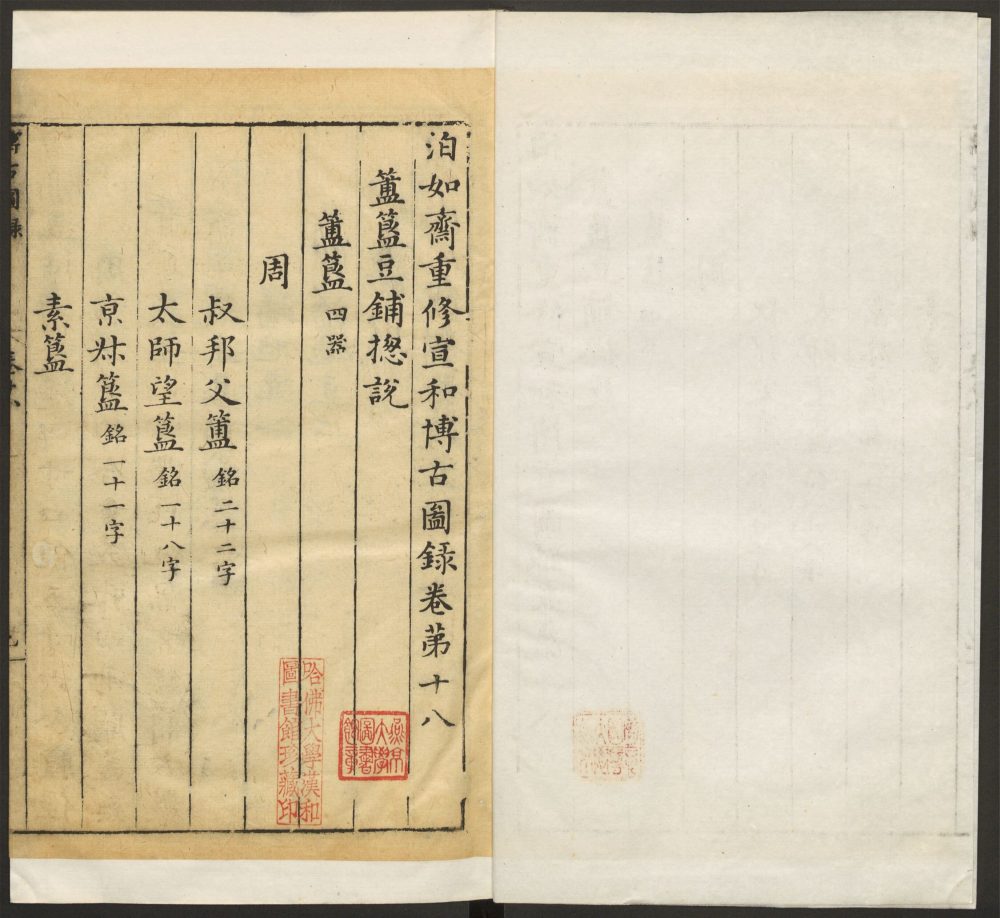 泊如齋重修宣和博古圖録卷第十八
簠簋豆鋪揔說
簠簋四器
周
叔邦父簠銘二十二字
太師望簋銘一十八字
京叔簋銘一十一字
素簋
博古圖録
燕京大學圖書館章
哈佛大學漢和圖書館珍藏印